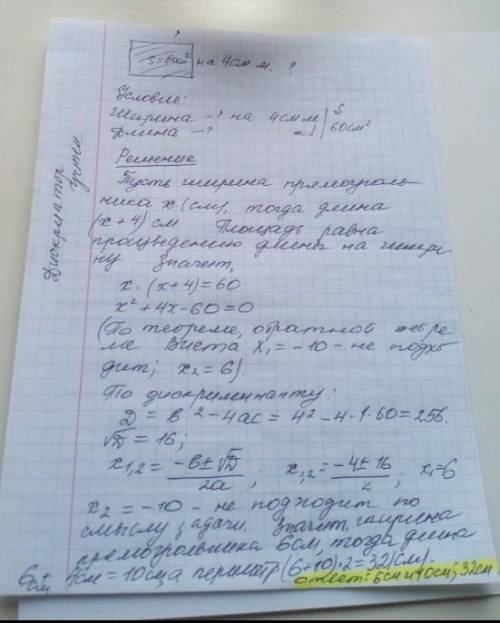 ?
S=60см² на 4см м. ?
Условие:
Ширина -? на 4см м | S
Длина -? | 60см²
Решение
Пусть ширина прямоуголь-
ника x (см), тогда длина
(x+4) см Площадь равна
произведению длины на шири-
ну Значит,
x·(x+4)=60
x²+4x-60=0
(По теореме, обратной теоре
ме Виета x₁=-10 - не подхо
дит; x₂=6).
По дискриминанту:
D = в²-4ac = 4²-4·1·60=256.
√D = 16;
x₁,₂ = -в±√D / 2a ; x₁,₂ = -4±16 / 2 ; x₁=6
x₂ = -10 - не подходит по
смыслу задачи. Значит ширина
прямоугольника 6см, тогда длина
6см+4см = 10см, а периметр (6+10)·2=32(см).
ответ: 6см и 10см; 32см
Дискриматор